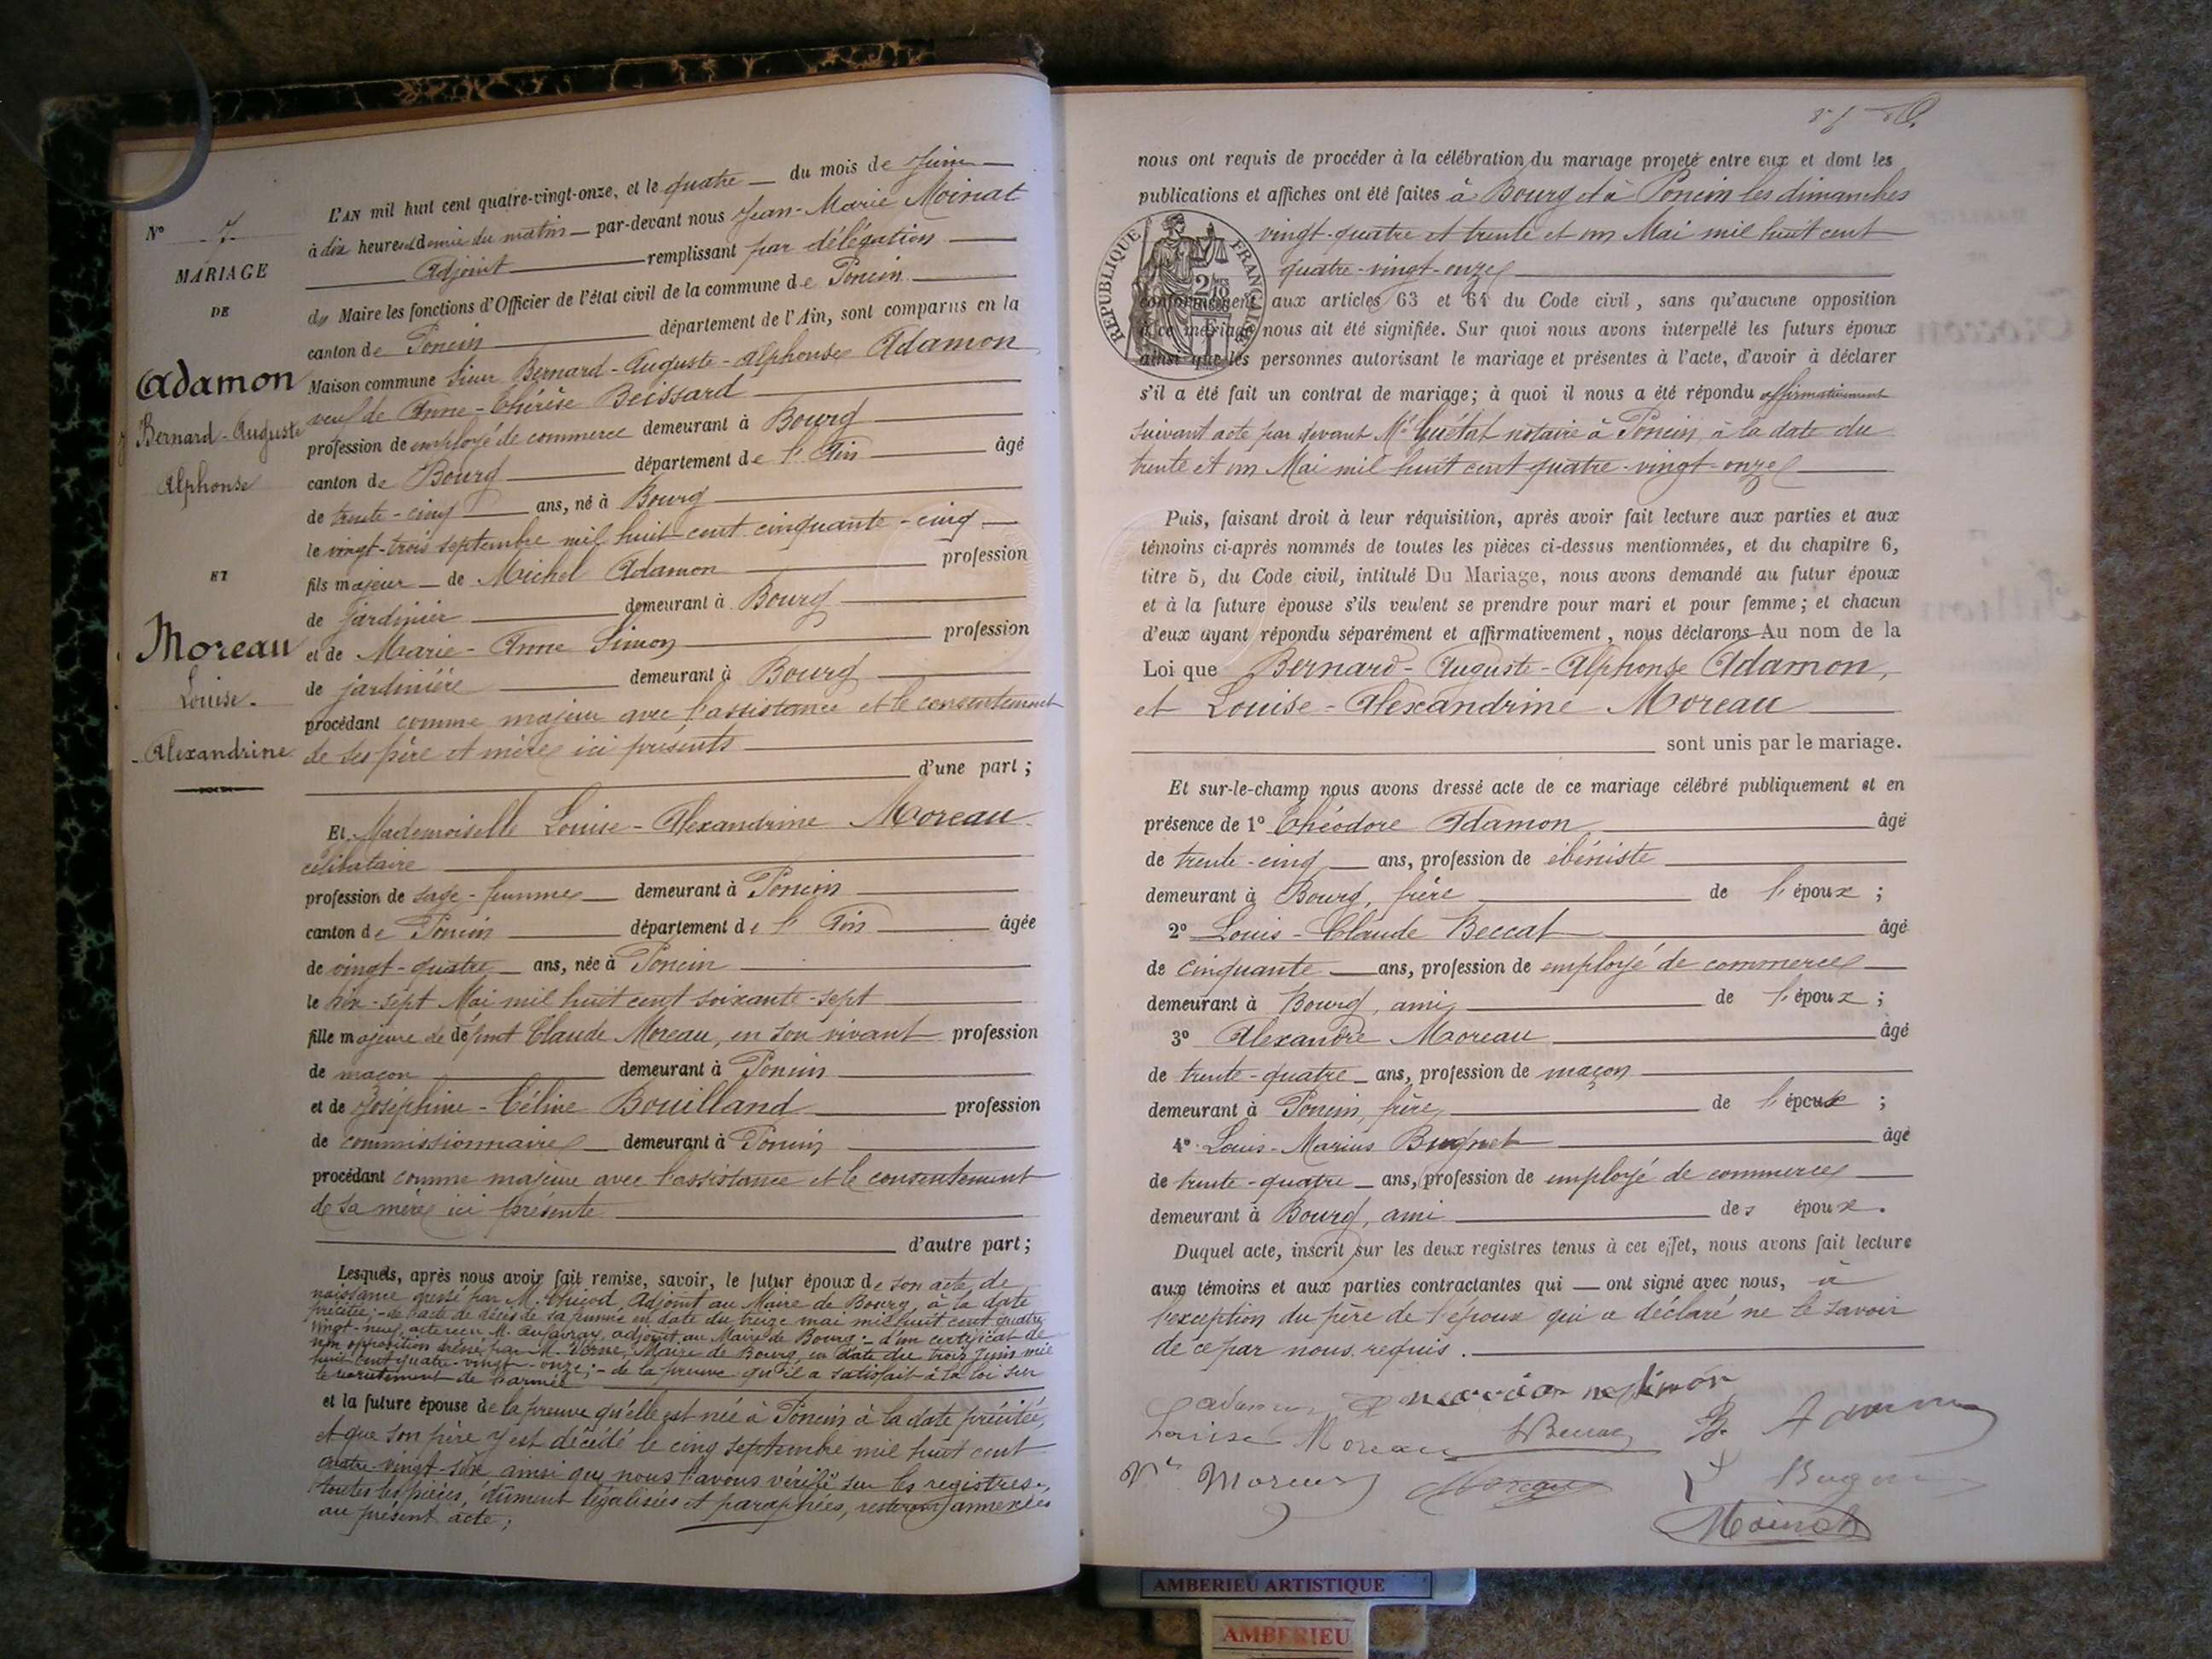 N° 7
MARIAGE
DE
Adamon
Bernard-Auguste
Alphonse
ET
Moreau
Louise-
-Alexandrine
L'AN mil huit cent quatre-vingt-onze, et le quatre du mois de Juin
à dix heures et demie du matin par-devant nous Jean-Marie Moinat
Adjoint remplissant par délégation
du Maire les fonctions d'Officier de l'état civil de la commune de Poncin
canton de Poncin département de l'Ain, sont comparus en la
Maison commune Sieur Bernard-Auguste-Alphonse Adamon
veuf de Anne-Thérèse Beissard
profession de employé de commerce demeurant à Bourg
canton de Bourg département de l'Ain âgé
de trente-cinq ans, né à Bourg
le vingt-trois septembre mil huit cent cinquante-cinq
fils majeur de Michel Adamon profession
de jardinier demeurant à Bourg
et de Marie-Anne Simon profession
de jardinière demeurant à Bourg
procédant comme majeur avec l'assistance et le consentement
de ses père et mère ici présents
d'une part;
Et Mademoiselle Louise-Alexandrine Moreau
célibataire
profession de sage-femme demeurant à Poncin
canton de Poncin département de l'Ain âgée
de vingt-quatre ans, née à Poncin
le dix-sept Mai mil huit cent soixante-sept
fille majeure de défunt Claude Moreau, en son vivant profession
de maçon demeurant à Poncin
et de Joséphine-Céline Bouilland profession
de commissionnaire demeurant à Poncin
procédant comme majeure avec l'assistance et le consentement
de sa mère ici présente
d'autre part;
Lesquels, après nous avoir fait remise, savoir, le futur époux de son acte de
naissance dressé par M. Adjoint au Maire de Bourg, à la date
précitée; - de l'acte de décès de sa femme en date du treize mai mil huit cent quatre
vingt-neuf, acte reçu M. adjoint au Maire de Bourg; - d'un certificat de
non opposition délivré par M. Verne, Maire de Bourg, en date du trois Juin mil
huit cent quatre-vingt-onze; - de la preuve qu'il a satisfait à la loi sur
le recrutement de l'armée
et la future épouse de la preuve qu'elle est née à Poncin à la date précitée,
et que son père y est décédé le cinq septembre mil huit cent
quatre-vingt-six ainsi que nous l'avons vérifié sur les registres.
toutes les pièces, dûment légalisées et paraphées, resteront annexées
au présent acte;
nous ont requis de procéder à la célébration du mariage projeté entre eux et dont les
publications et affiches ont été faites à Bourg et à Poncin les dimanches
vingt-quatre et trente et un Mai mil huit cent
quatre-vingt-onze
RÉPUBLIQUE FRANÇAISE
conformément aux articles 63 et 64 du Code civil, sans qu'aucune opposition
à ce mariage nous ait été signifiée. Sur quoi nous avons interpellé les futurs époux
ainsi que les personnes autorisant le mariage et présentes à l'acte, d'avoir à déclarer
s'il a été fait un contrat de mariage; à quoi il nous a été répondu affirmativement
suivant acte par devant Me Guétat notaire à Poncin, à la date du
trente et un Mai mil huit cent quatre-vingt-onze
Puis, faisant droit à leur réquisition, après avoir fait lecture aux parties et aux
témoins ci-après nommés de toutes les pièces ci-dessus mentionnées, et du chapitre 6,
titre 5, du Code civil, intitulé Du Mariage, nous avons demandé au futur époux
et à la future épouse s'ils veulent se prendre pour mari et pour femme; et chacun
d'eux ayant répondu séparément et affirmativement, nous déclarons Au nom de la
Loi que Bernard-Auguste-Alphonse Adamon,
et Louise-Alexandrine Moreau
sont unis par le mariage.
Et sur-le-champ nous avons dressé acte de ce mariage célébré publiquement et en
présence de 1° Théodore Adamon âgé
de trente-cinq ans, profession de ébéniste
demeurant à Bourg, frère de l'époux;
2° Louis-Claude Beccat âgé
de cinquante ans, profession de employé de commerce
demeurant à Bourg, ami de l'époux;
3° Alexandre Moreau âgé
de trente-quatre ans, profession de maçon
demeurant à Poncin, frère de l'épouse;
4° Louis-Marius Bugnet âgé
de trente-quatre ans, profession de employé de commerce
demeurant à Bourg, ami des époux.
Duquel acte, inscrit sur les deux registres tenus à cet effet, nous avons fait lecture
aux témoins et aux parties contractantes qui ont signé avec nous, à
l'exception du père de l'époux qui a déclaré ne le savoir
de ce par nous requis.
Louise Moreau
Vve Moreau
Moreau
Moinat
AMBERIEU ARTISTIQUE
AMBERIEU